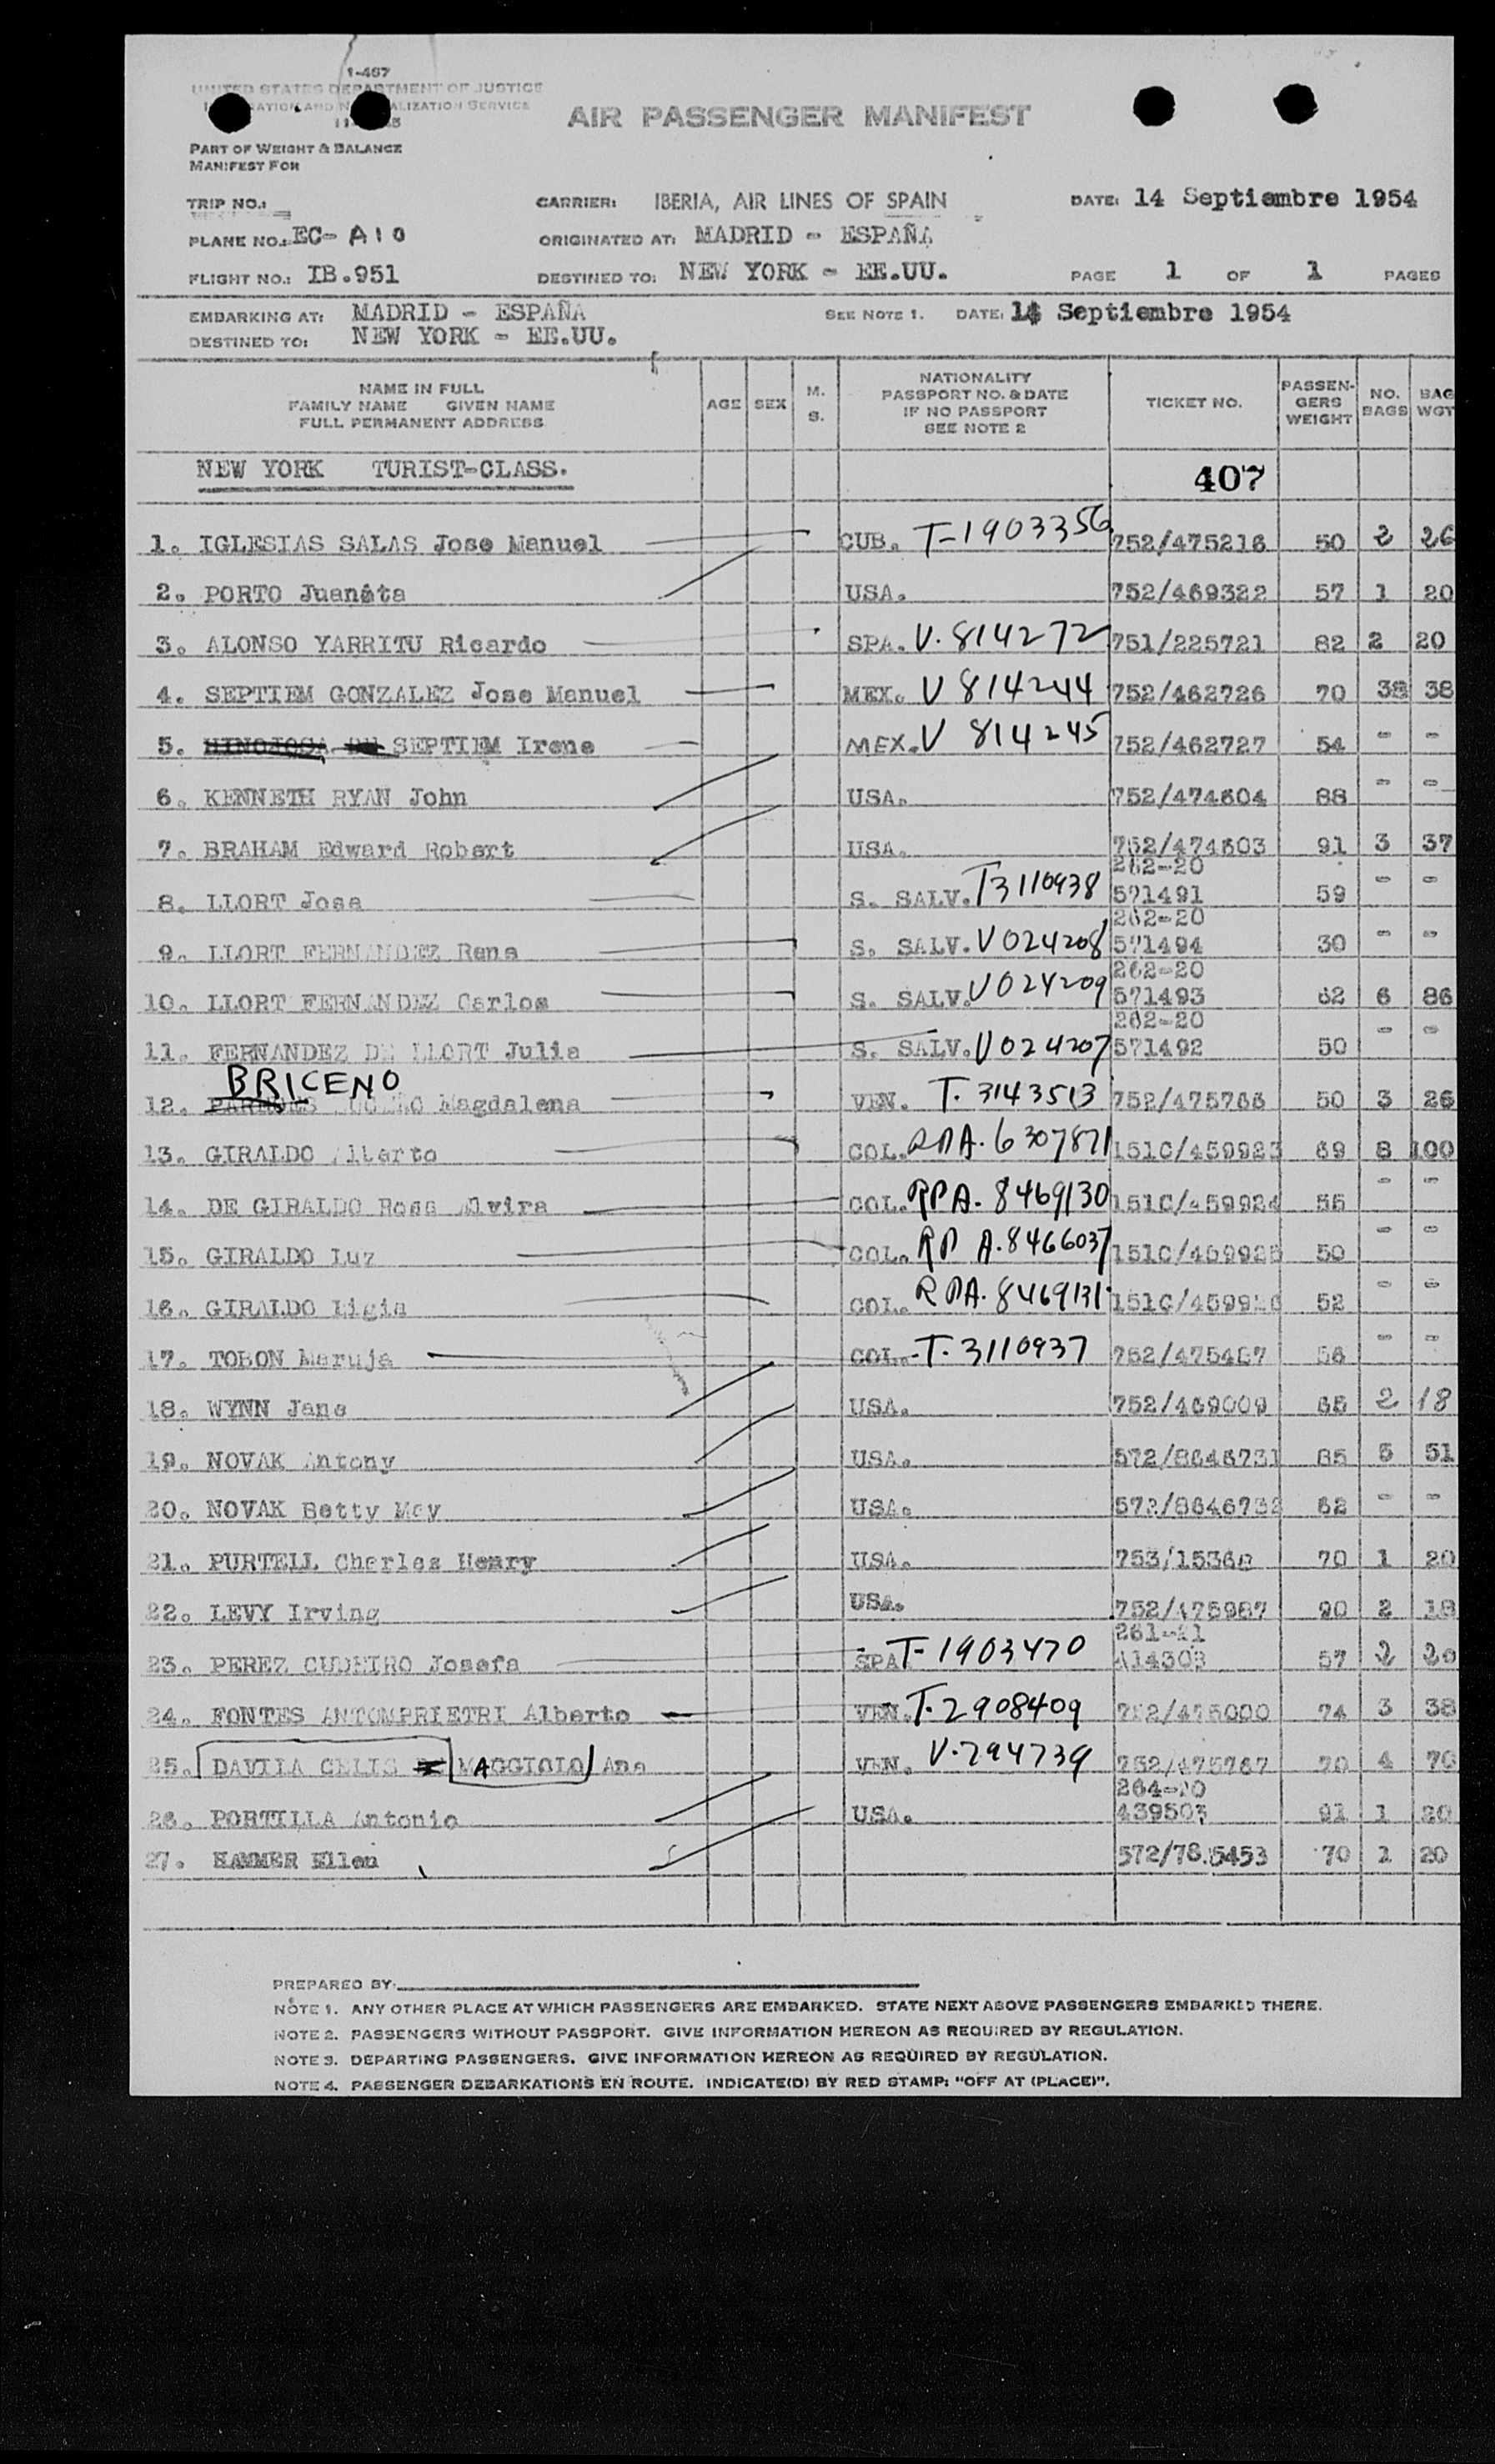 1-467
UNITED STATES DEPARTMENT OF JUSTICE
AIR PASSENGER MANIFEST
PART OF WEIGHT & BALANCE
MANIFEST FOR
TRIP NO.: CARRIER: IBERIA, AIR LINES OF SPAIN DATE: 14 Septiembre 1954
PLANE NO.: EC- A10 ORIGINATED AT: MADRID - ESPAÑA
FLIGHT NO.: IB.951 DESTINED TO: NEW YORK - EE.UU. PAGE 1 OF 1 PAGES
EMBARKING AT: MADRID - ESPAÑA SEE NOTE 1. DATE: 14 Septiembre 1954
DESTINED TO: NEW YORK - EE.UU.
NAME IN FULL
FAMILY NAME GIVEN NAME
FULL PERMANENT ADDRESS
AGE SEX M. S.
NATIONALITY
PASSPORT NO. & DATE
IF NO PASSPORT
SEE NOTE 2
TICKET NO. PASSENGERS WEIGHT NO. BAGS BAG WGT
NEW YORK TURIST-CLASS. 407
1. IGLESIAS SALAS Jose Manuel CUB. T-1903356 752/475216 50 2 26
2. PORTO Juanita USA. 752/469322 57 1 20
3. ALONSO YARRITU Ricardo SPA. V. 814272 751/225721 82 2 20
4. SEPTIEM GONZALEZ Jose Manuel MEX. V 814244 752/462726 70 38 38
5. SEPTIEM Irene MEX. V 814245 752/462727 54 - -
6. KENNETH RYAN John USA. 752/474604 88 - -
7. BRAHAM Edward Robert USA. 752/474603 91 3 37
8. LLORT Jose S. SALV. T3110938 262-20 571491 59 - -
9. LLORT FERNANDEZ Rene S. SALV. V024208 262-20 571494 30 - -
10. LLORT FERNANDEZ Carlos S. SALV. V024209 262-20 571493 62 6 86
11. FERNANDEZ DE LLORT Julia S. SALV. V024207 262-20 571492 50 - -
BRICENO
12. Magdalena VEN. T. 3143513 752/475766 50 3 26
13. GIRALDO Alberto COL. RPA. 6307871 151C/459923 69 8 100
14. DE GIRALDO Rosa Elvira COL. RPA. 8469130 151C/459924 55 - -
15. GIRALDO Luz COL. RPA. 8466037 151C/459925 50 - -
16. GIRALDO Ligia COL. RPA. 8469131 151C/459926 52 - -
17. TOBON Maruja COL. T. 3110937 752/475467 56 - -
18. WYNN Jane USA. 752/469009 65 2 18
19. NOVAK Antony USA. 572/8646731 85 5 51
20. NOVAK Betty May USA. 572/8646732 62 - -
21. PURTELL Charles Henry USA. 753/15368 70 1 20
22. LEVY Irving USA. 752/475987 90 2 18
23. PEREZ CUDEIRO Josefa SPA T-1903470 261-21 414303 57 2 20
24. FONTES ANTOMPRIETRI Alberto VEN. T. 2908409 752/475000 74 3 38
25. DAVILA CELIS MAGGIOLO Ana VEN. V. 294739 752/475767 70 4 70
26. PORTILLA Antonio USA. 264-20 439503 91 1 20
27. HAMMER Ellen 572/78.5453 70 1 20
PREPARED BY:
NOTE 1. ANY OTHER PLACE AT WHICH PASSENGERS ARE EMBARKED. STATE NEXT ABOVE PASSENGERS EMBARKED THERE.
NOTE 2. PASSENGERS WITHOUT PASSPORT. GIVE INFORMATION HEREON AS REQUIRED BY REGULATION.
NOTE 3. DEPARTING PASSENGERS. GIVE INFORMATION HEREON AS REQUIRED BY REGULATION.
NOTE 4. PASSENGER DEBARKATIONS EN ROUTE. INDICATE(D) BY RED STAMP: "OFF AT (PLACE)".